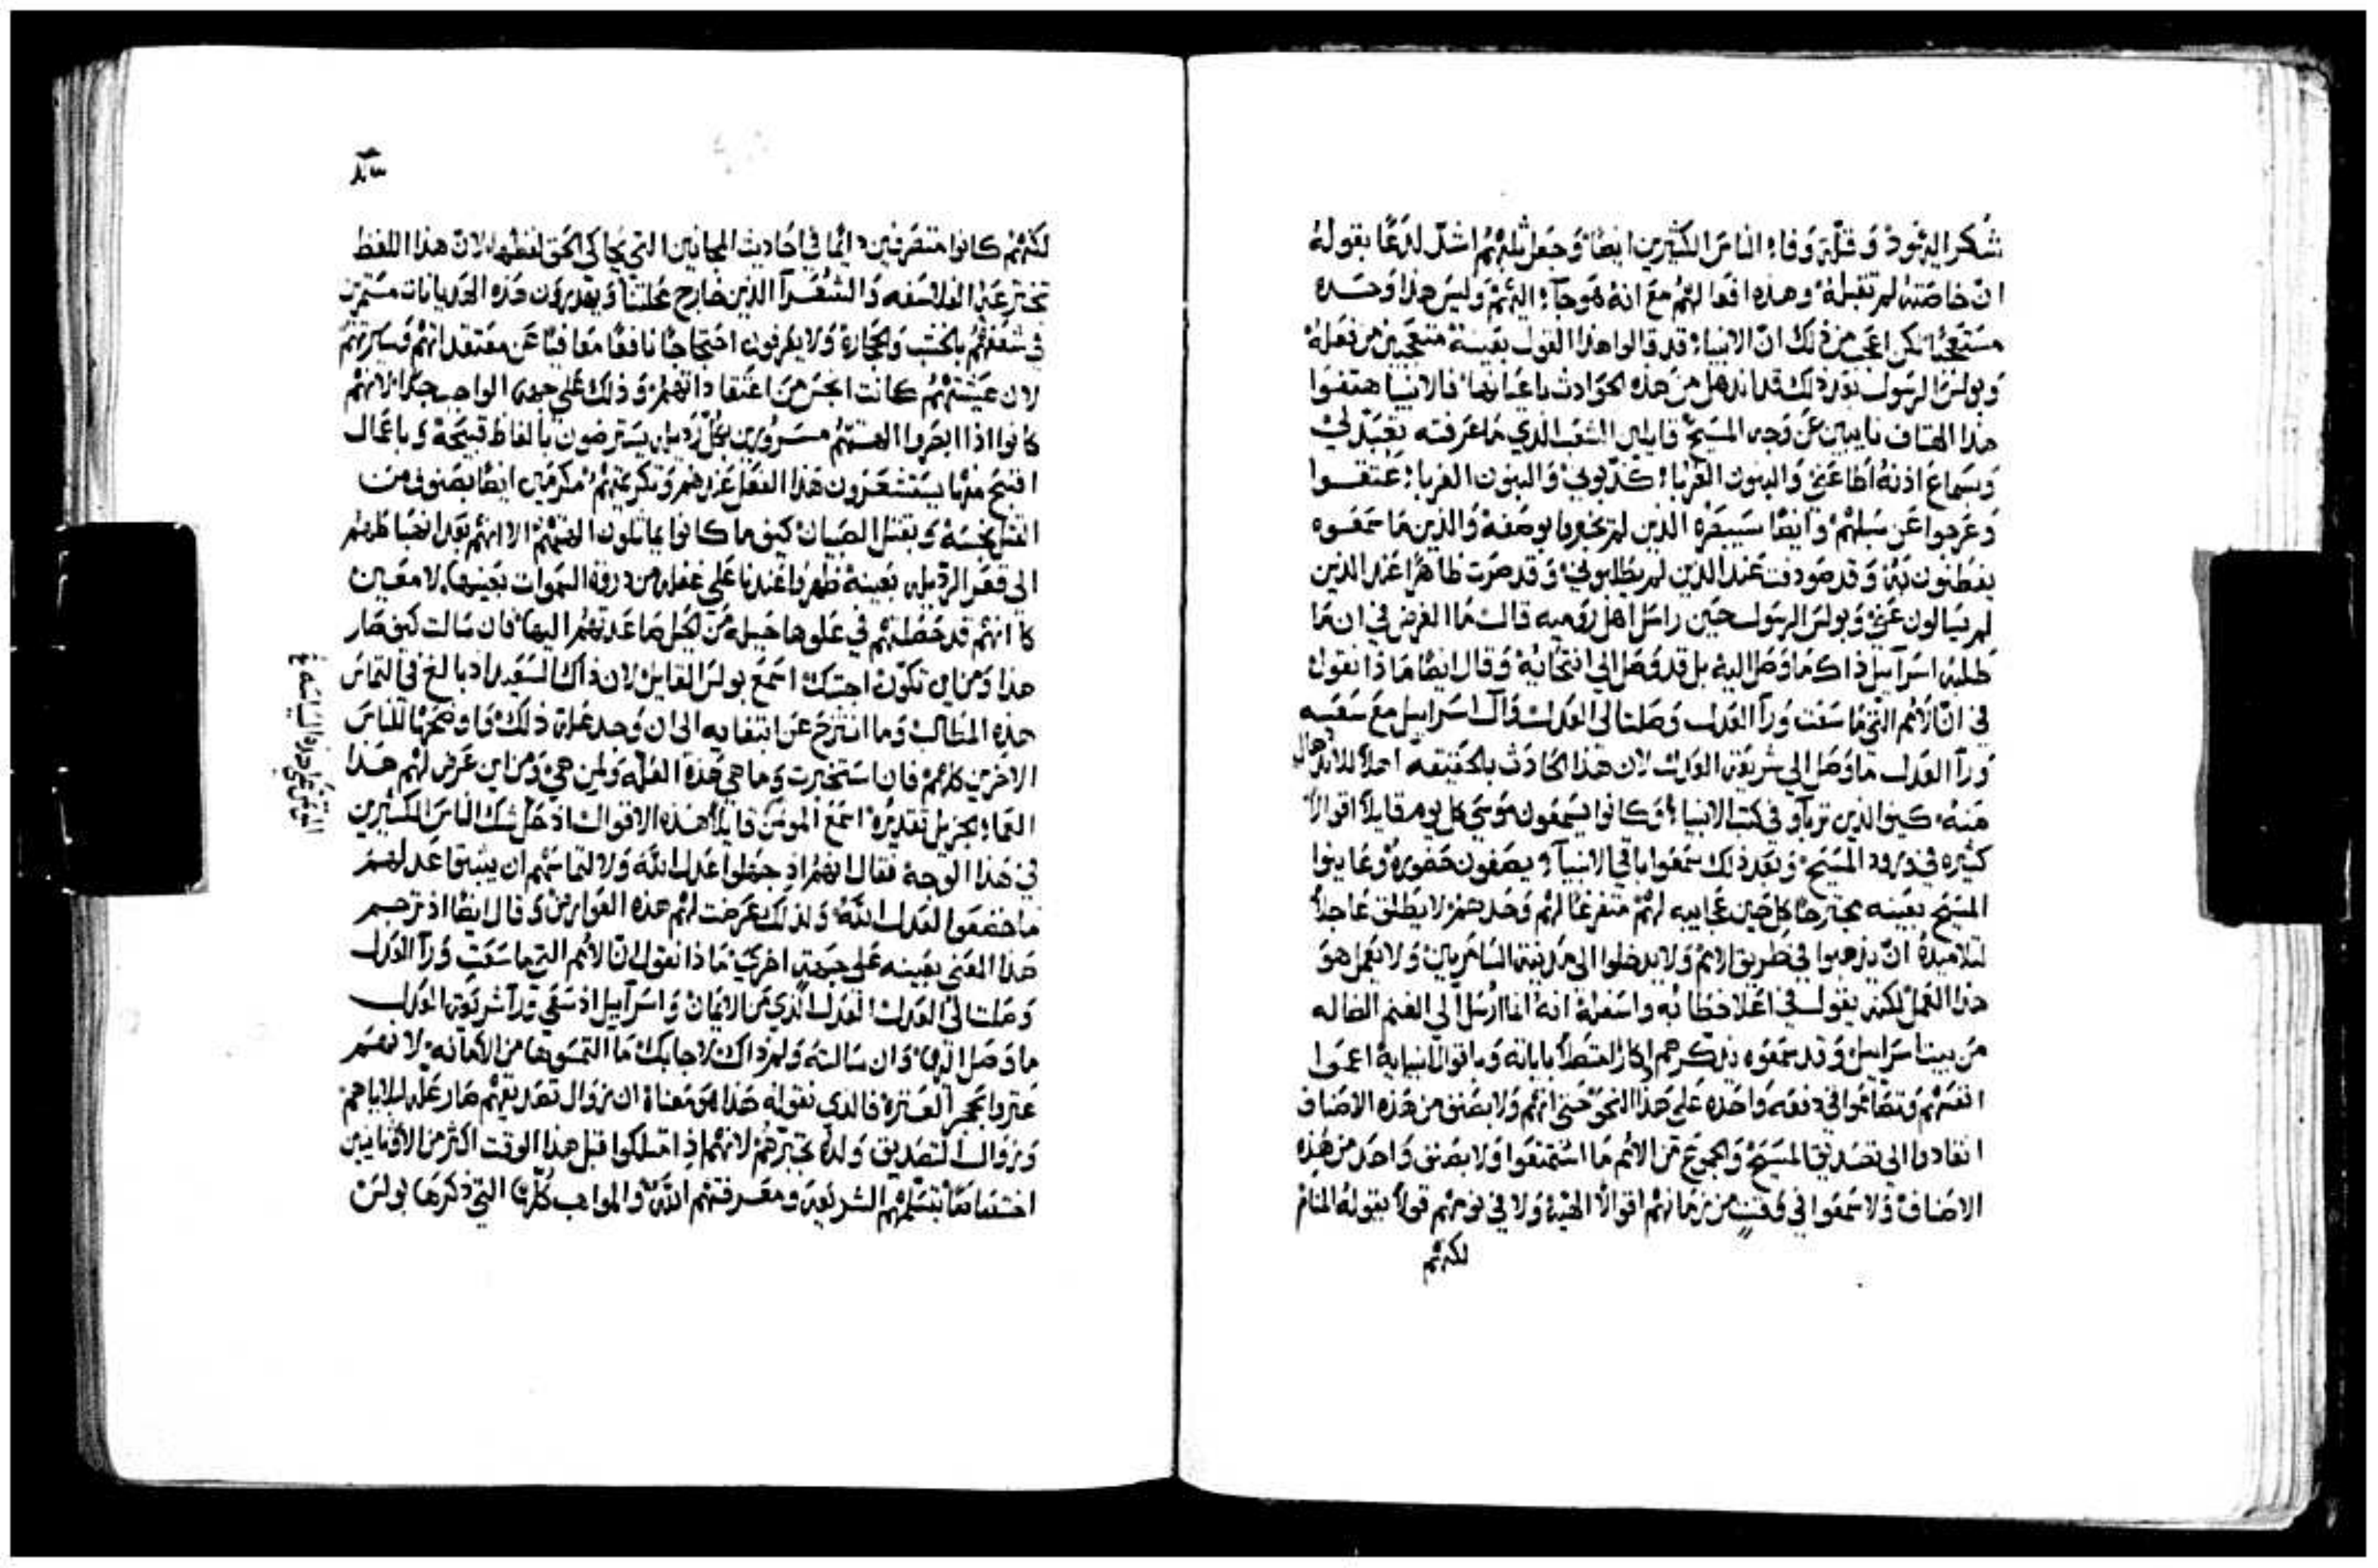 شكر اليهود وقلة وفاء الناس الكثيرين ايضا وجعل ثلبهم اشد لدغا بقوله
ان خاصته لم تقبله وهذه افعالهم مع انه هو جاء اليهم وليس هذا وحده
مستعجبا لكن اعجب من ذلك ان الانبياء قد قالوا هذا القول بعينه متعجبين من فعله
وبولس الرسول بعد ذلك قد اندهل من هذه الحوادث باعيانها فالانبيا هتفوا
هذا الهتاف نايبين عن وجه المسيح قايلين الشعب الذي ما عرفته تعبد لي
وبسماع اذنه اطاعني والبنون الغربا كذبوني والبنون الغربا عتقوا
وعرجوا عن سبلهم وايضا سيبصره الذين لم يخبروا بوصفه والذين ما سمعوه
يفطنون به وقد صودفت عند الذين لم يطلبوني وقد صرت ظاهرا عند الذين
لم يسالون عني وبولس الرسول حين راسل اهل روميه قال ما الغرض في ان ما
طلبه اسراييل ذاك ما وصل اليه بل قد وصل الي انتخابه وقال ايضا ماذا نقول
في ان الامم التي ما سعت ورآ العدل وصلت الي العدل وآل اسراييل مع سعيه
ورآ العدل ما وصل الي شريعة العدل لان هذا الحادث بالحقيقه اهلا للاندهال
منه كيف الذين تربآو في كتب الانبيا وكانوا يسمعون موسي كل يوم قايلا اقوالا
كثيره في ورود المسيح وبعد ذلك سمعوا باقي الانبيآ يصفون حضوره وعاينوا
المسيح بعينه يجترحا كل حين عجاييه لهم متفرغا لهم وحدهم لا يطلق عاجلا
لتلاميذه ان يذهبوا في طريق الامم ولا يدخلوا الي مدينة السامريين ولا يعمل هو
هذا العمل لكنه يقول في اعلا خطابه واسفله انه انما ارسل الي الغنم الضاله
من بيت اسراييل وقد سمعوه
انفسهم وتصاعوا في دفعه واحده علي هذا النحو حتي انهم ولا بصنف من هذه الاصناف
انقادوا الي تصديق المسيح والجموع من الامم ما استمتعوا ولا بصنف واحد من هذه
الاصناف ولا سمعوا في وقت من زمانهم اقوالا الهيه ولا في نومهم قولا بقوله المنام
لكنهم
لكنهم كانوا متصرفين دايما في احاديث المجانين التي يحاكي الحق لفظها لان هذا اللفظ
الفلاسفه والشعرآ الذين خارج محلتنا ويهذرون هذه الهذيانات مستمرين
في شغفهم بالخشب والحجاره ولا يعرفون احتجاجا نافعا معافيا عن معتقداتهم وسيرتهم
لان عيشتهم كانت انجس من اعتقاداتهم وذلك علي جهة الواجب جدا لانهم
كانوا اذا ابصروا الهتهم مسرورين بكل رذيله يسترضون بالفاظ قبيحه وباعمال
اقبح منها يستشعرون هذا الفعل عندهم وتكرمتهم مكرمين ايضا بصنوف من
القتل نجسه وبقتل الصبيان كيف ما كانوا يماثلون الهتهم الا انهم بعد انضباطهم
الي قعر الرذيله بعينه ظهروا عندنا علي غفله من دروة السموات بعينها لامعين
هذا ومن اين تكون اجبتك اسمع بولس القايل لان ذاك السعيد بالغ في التماس
هذه المطالب وما انتزح عن ابتغايه الي ان وجد علة ذلك واوضحها للناس
الاخرين كلهم فان استخبرت وما هي هذه العله ولمن هي ومن اين عرض لهم هذا
العماء الجزيل تقديره اسمع المومن قايلا هذه الاقوال اذ حل شك الناس الكثيرين
في هذا الوجه فقال انهم اذ جهلوا عدل الله ولالتماسهم ان يثبتوا عدلهم
ما خضعوا لعدل الله ولذلك عرضت لهم هذه العوارض وقال ايضا اذ ترجم
هذا المعني بعينه علي جهة اخري ماذا نقول ان الامم التي ما سعت ورآ العدل
وصلت الي العدل العدل الذي من الايمان واسرآييل اذ سعي ورآ شريعة العدل
ما وصل اليها وان سالته ولم ذاك لاجابك ما التمسوها من الامانه لانهم
عثروا بحجر العثره فالذي نقوله هذا هو معناه ان زوال تصديقهم صار عله لبلاياهم
وزوال التصديق ولده تجبرهم لانهم اذ امتلكوا قبل هذا الوقت اكثر من الاوثانيين
اختصاصا بتسلمهم الشريعه ومعرفتهم الله والمواهب كلها التي ذكرها بولس